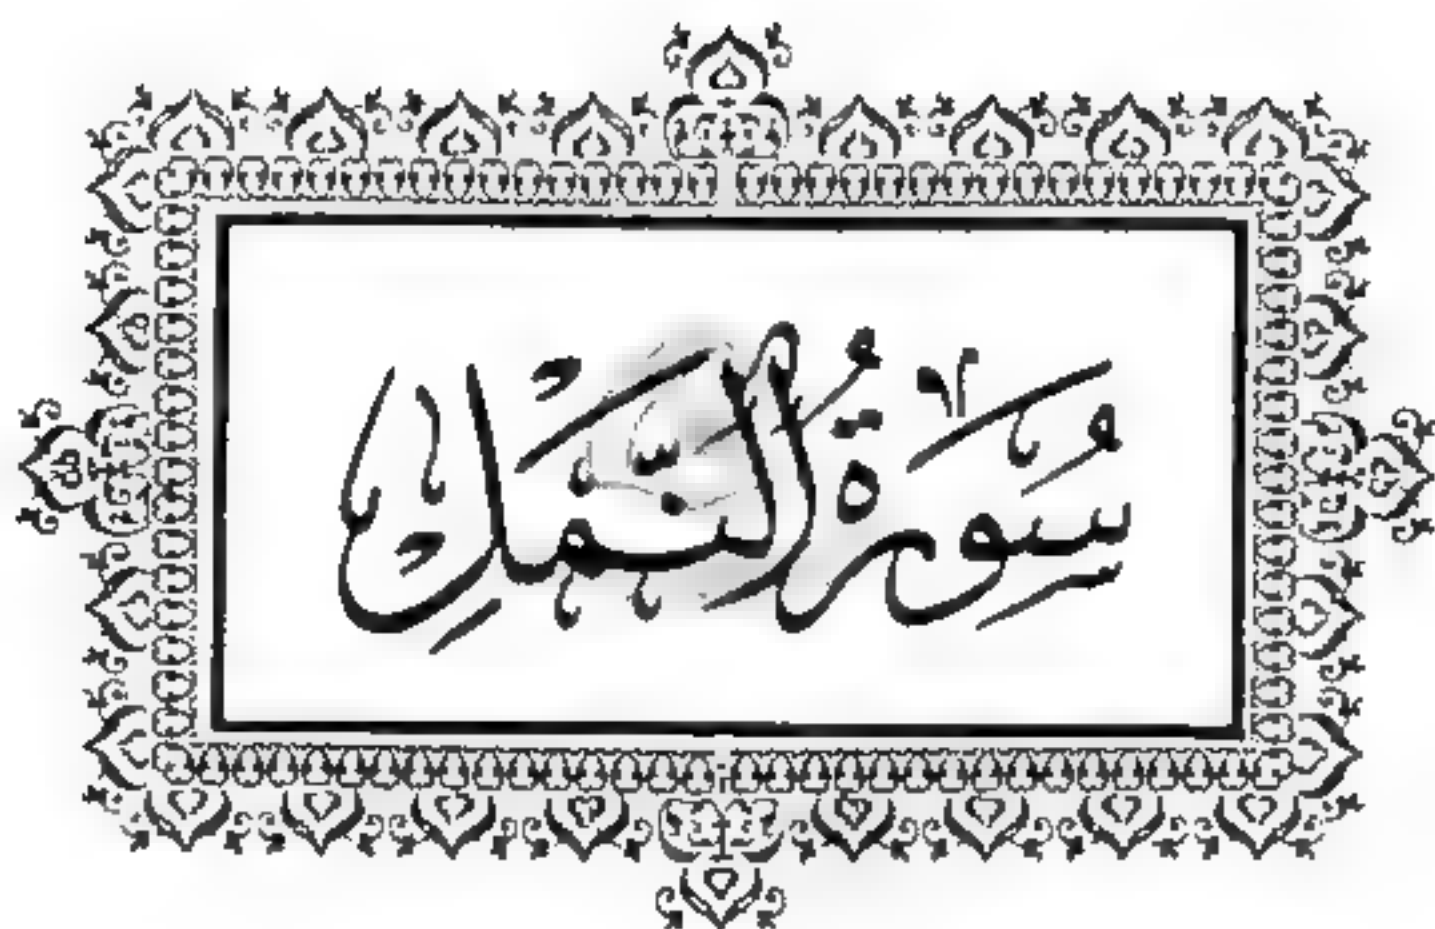 سُورَةُ النَّمْلِ